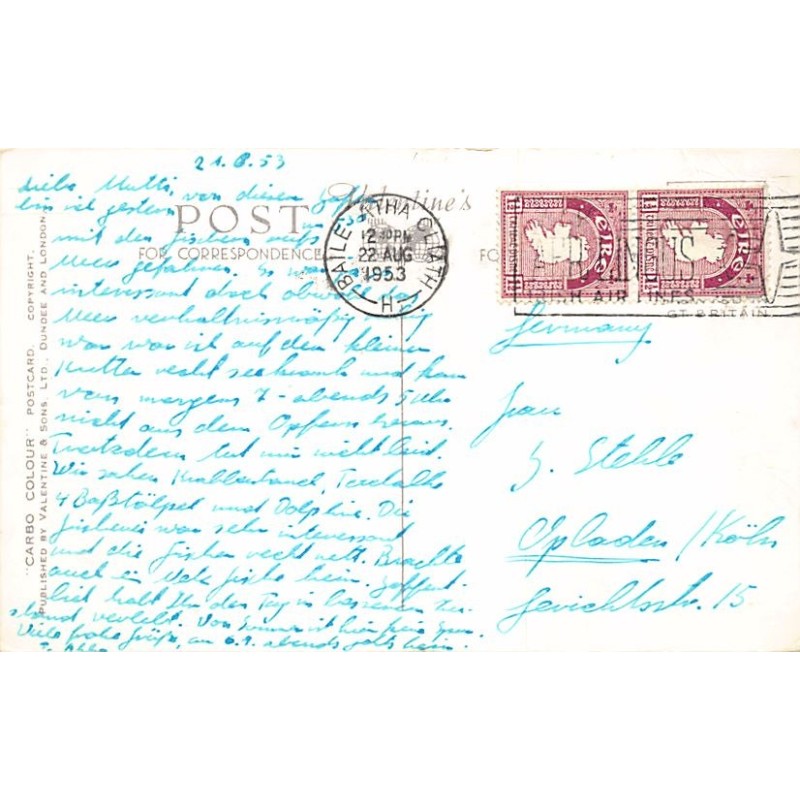 21.8.53
Liebe Mutti, von diesem
bin ich gestern
mit den Fischern aufs
Meer gefahren. Es war
interessant doch obwohl das
Meer verhältnismäßig
war war ich auf dem kleinen
Kutter recht seekrank und kam
von morgens 7 - abends 5 Uhr
nicht aus dem Opfern heraus.
Trotzdem tut mir nicht leid.
Wir sahen
4 Baßtölpel und Dolphine. Die
Fischerei war sehr interessant
und die Fischer recht nett. Brachte
auch ein Fische heim. Hoffent-
lich habt Ihr den Tag in besserem Zu-
stand verlebt. Von Sommer ist hier keine Spur.
Viele frohe Grüße, am 6.9. abends heim.
Valentine's
POST
FOR CORRESPONDENCE
FO
BAILE ÁTHA CLIATH
12 30 PM
22 AUG
1953
H
éire
éire
AIR LINES
GT BRITAIN
Germany
Frau
J. Stehle
Opladen / Köln
Gerichtsstr. 15
"CARBO COLOUR" POSTCARD. COPYRIGHT.
PUBLISHED BY VALENTINE & SONS, LTD., DUNDEE AND LONDON.